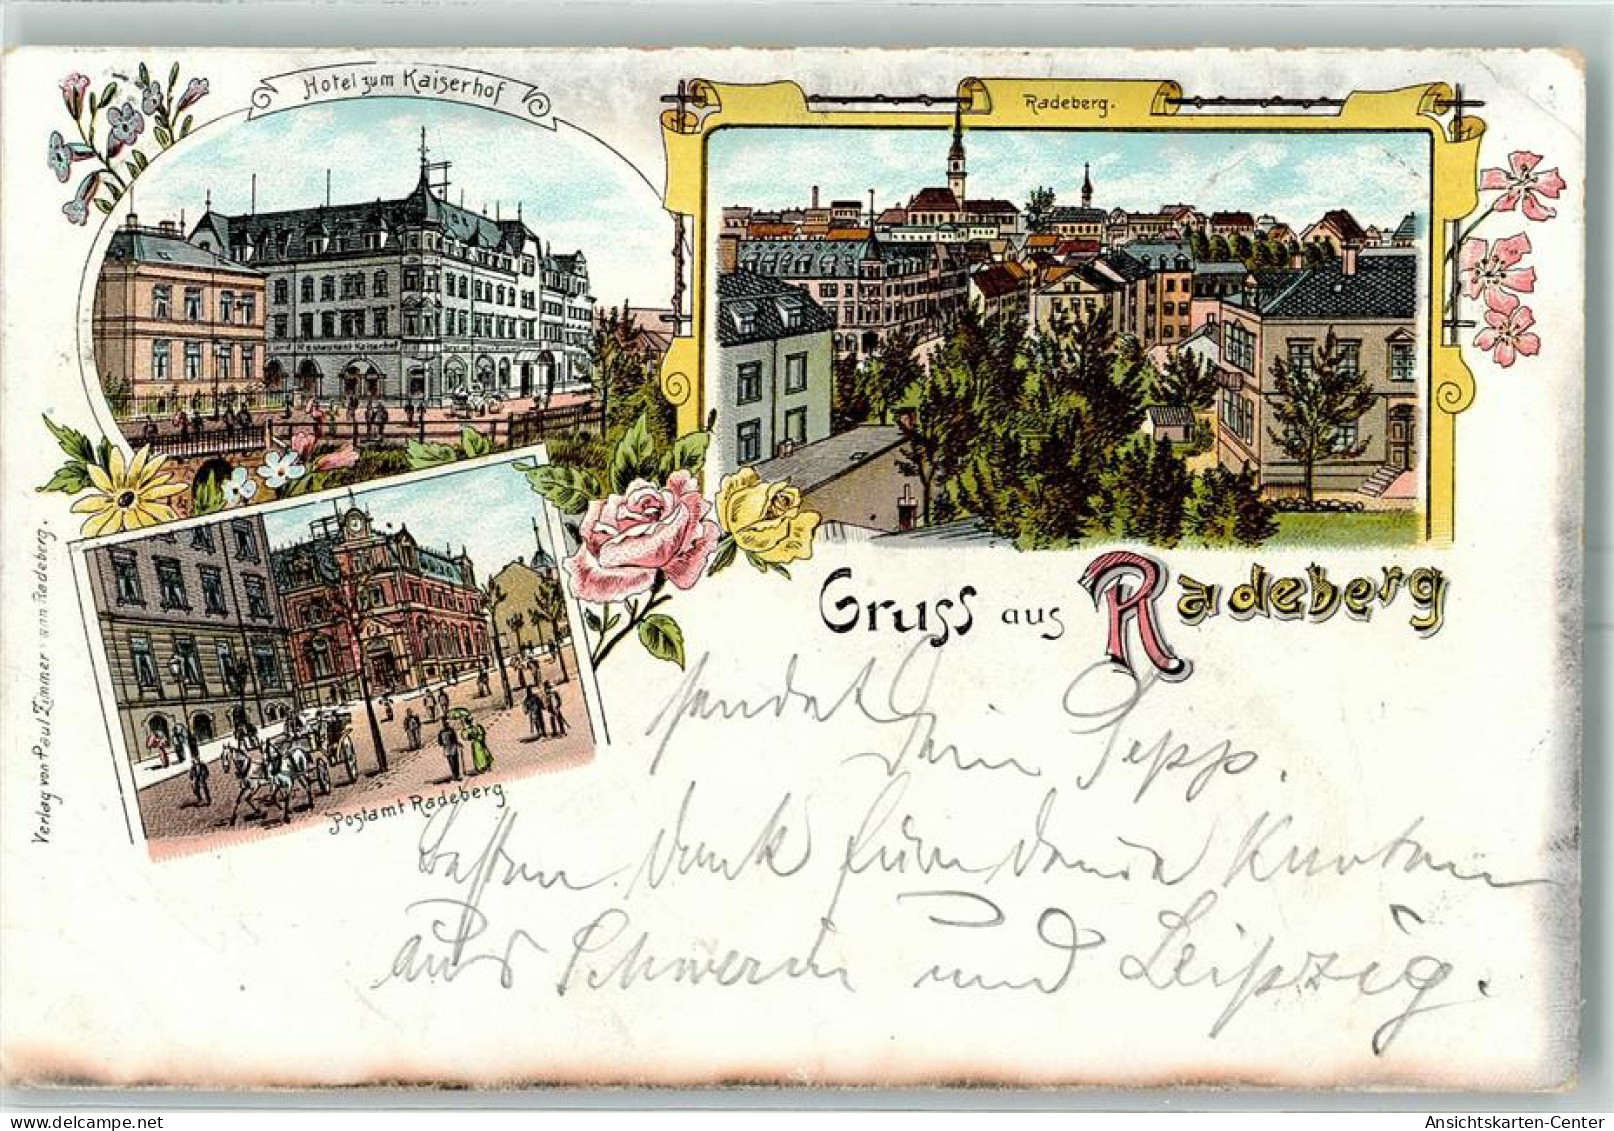 Hotel zum Kaiserhof
Radeberg.
Restaurant Kaiserhof
Gruss aus Radeberg
sendet
Dein Sepp.
Postamt Radeberg
Besten Dank für deine Karten
aus Schwerin und Leipzig.
Verlag von Paul Zimmermann Radeberg.
Ansichtskarten-Center